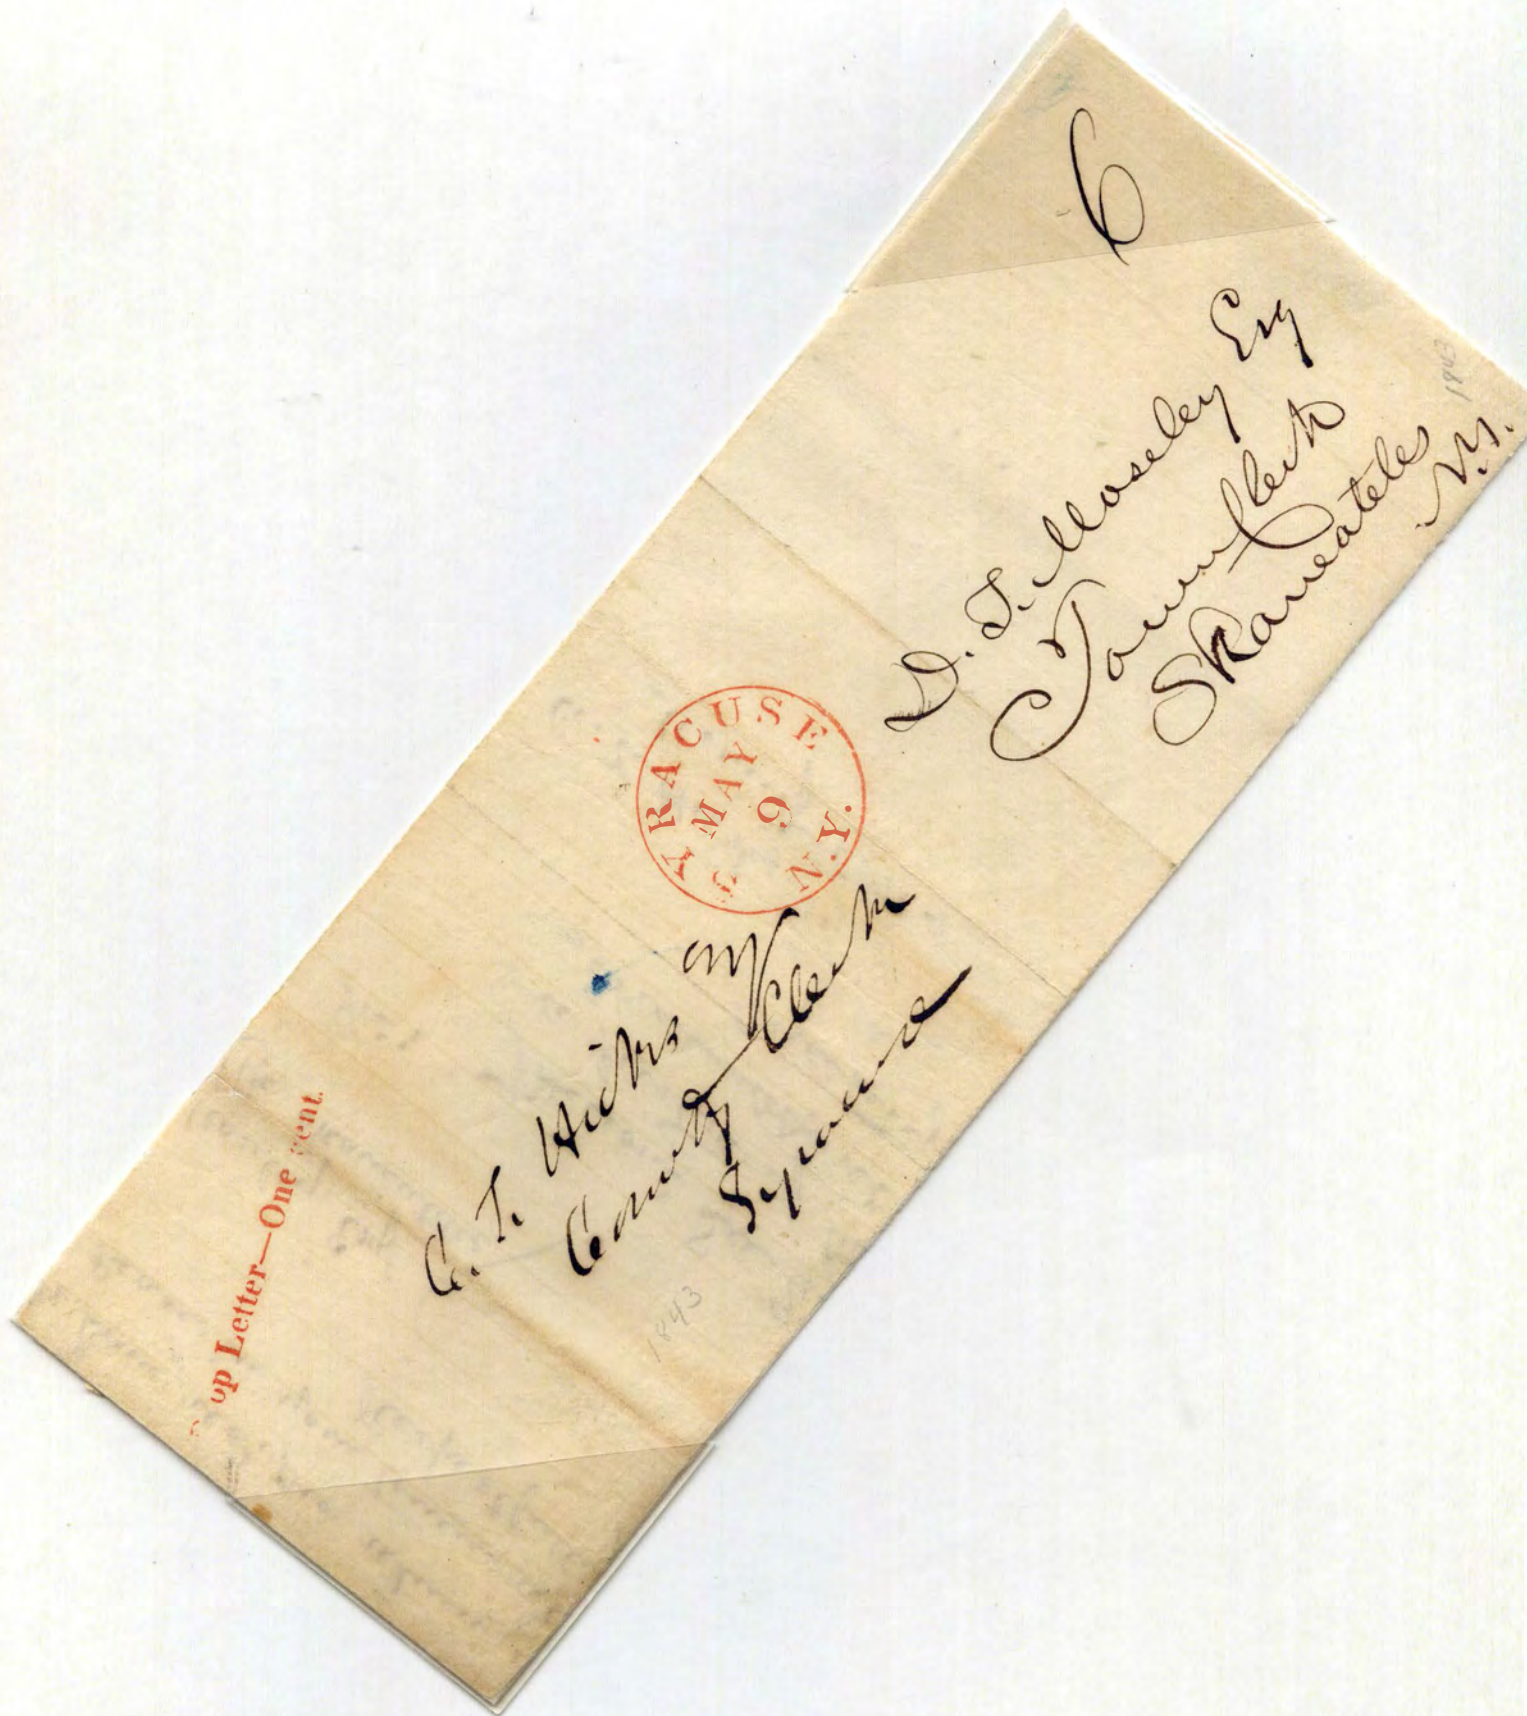 6
D. T. Moseley Esq
Town Clerk
Skaneateles
N.Y.
1843
SYRACUSE N.Y.
MAY
9
C. T. Hicks
County Clerk
Syracuse
1843
op Letter—One cent.